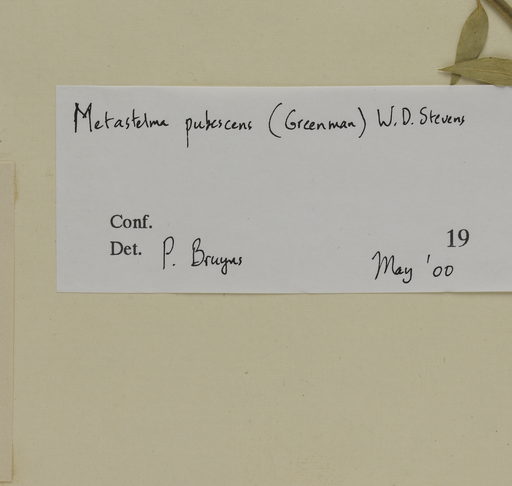 Metastelma pubescens (Greenman) W.D. Stevens
Conf.
19
Det. P. Bruyns May '00